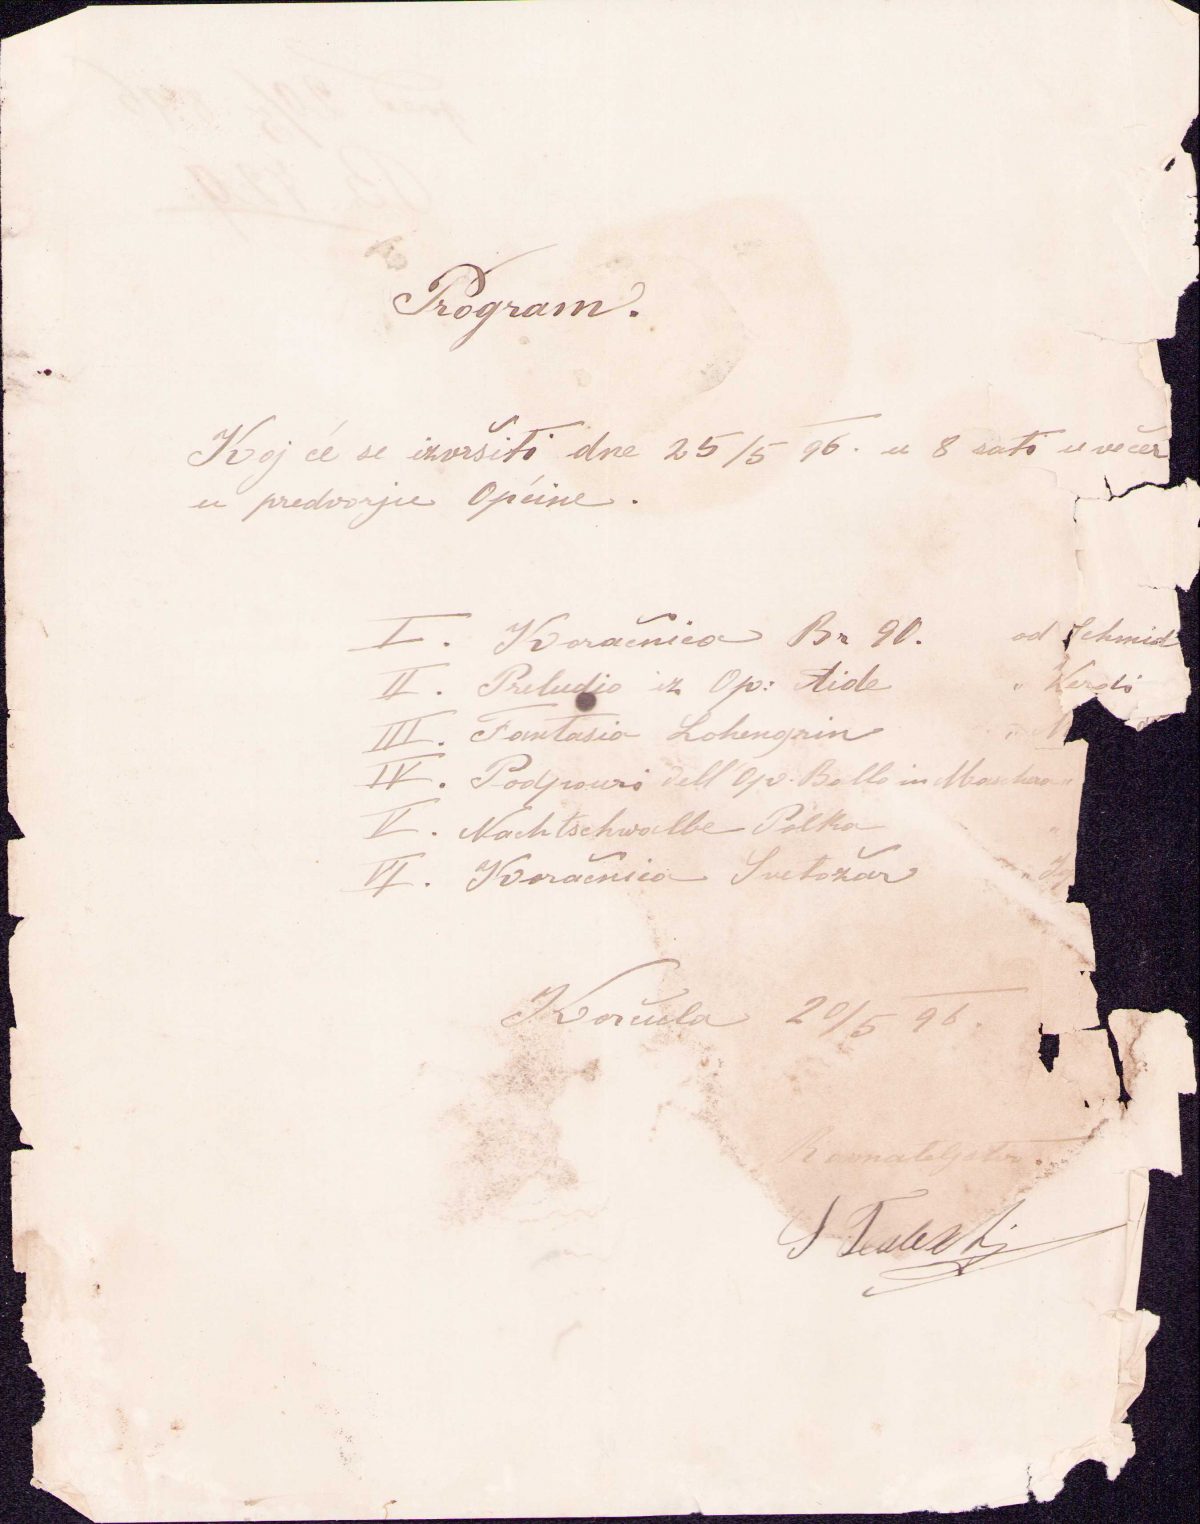 Program.
Koj će se izvršiti dne 25/5 96. u 8 sati u večer
u predvorju Općine.
I. Koračnica Br 90. od Schmid
II. Preludio iz Op: Aide " Verdi
III. Fantasia Lohengrin "
IV. Podpouri dell' Op. Ballo in Maschera "
V. Nachtschwalbe Polka "
VI. Koračnica Svetožar "
Korčula 20/5 96.
Ravnateljstvo.